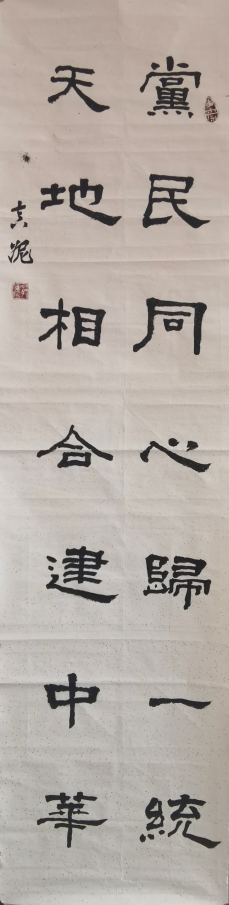 黨民同心歸一統
天地相合建中華